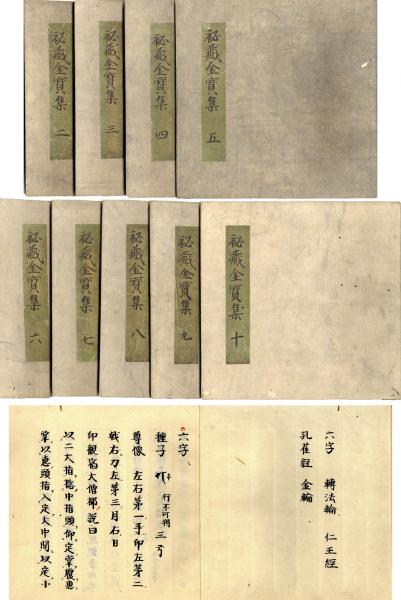 祕藏金寶集 二
祕藏金寶集 三
祕藏金寶集 四
祕藏金寶集 五
祕藏金寶集 六
祕藏金寶集 七
祕藏金寶集 八
祕藏金寶集 九
祕藏金寶集 十
六字 轉法輪 仁王經
孔雀經 金輪
六字
種子 行不可得 三
尊像 左右第一手印左第二
戟右刀左第三月右日
印觀宿大僧都説曰
以二大指捻中指頭仰定掌覆惠
掌以惠頭指入定大中間以定小